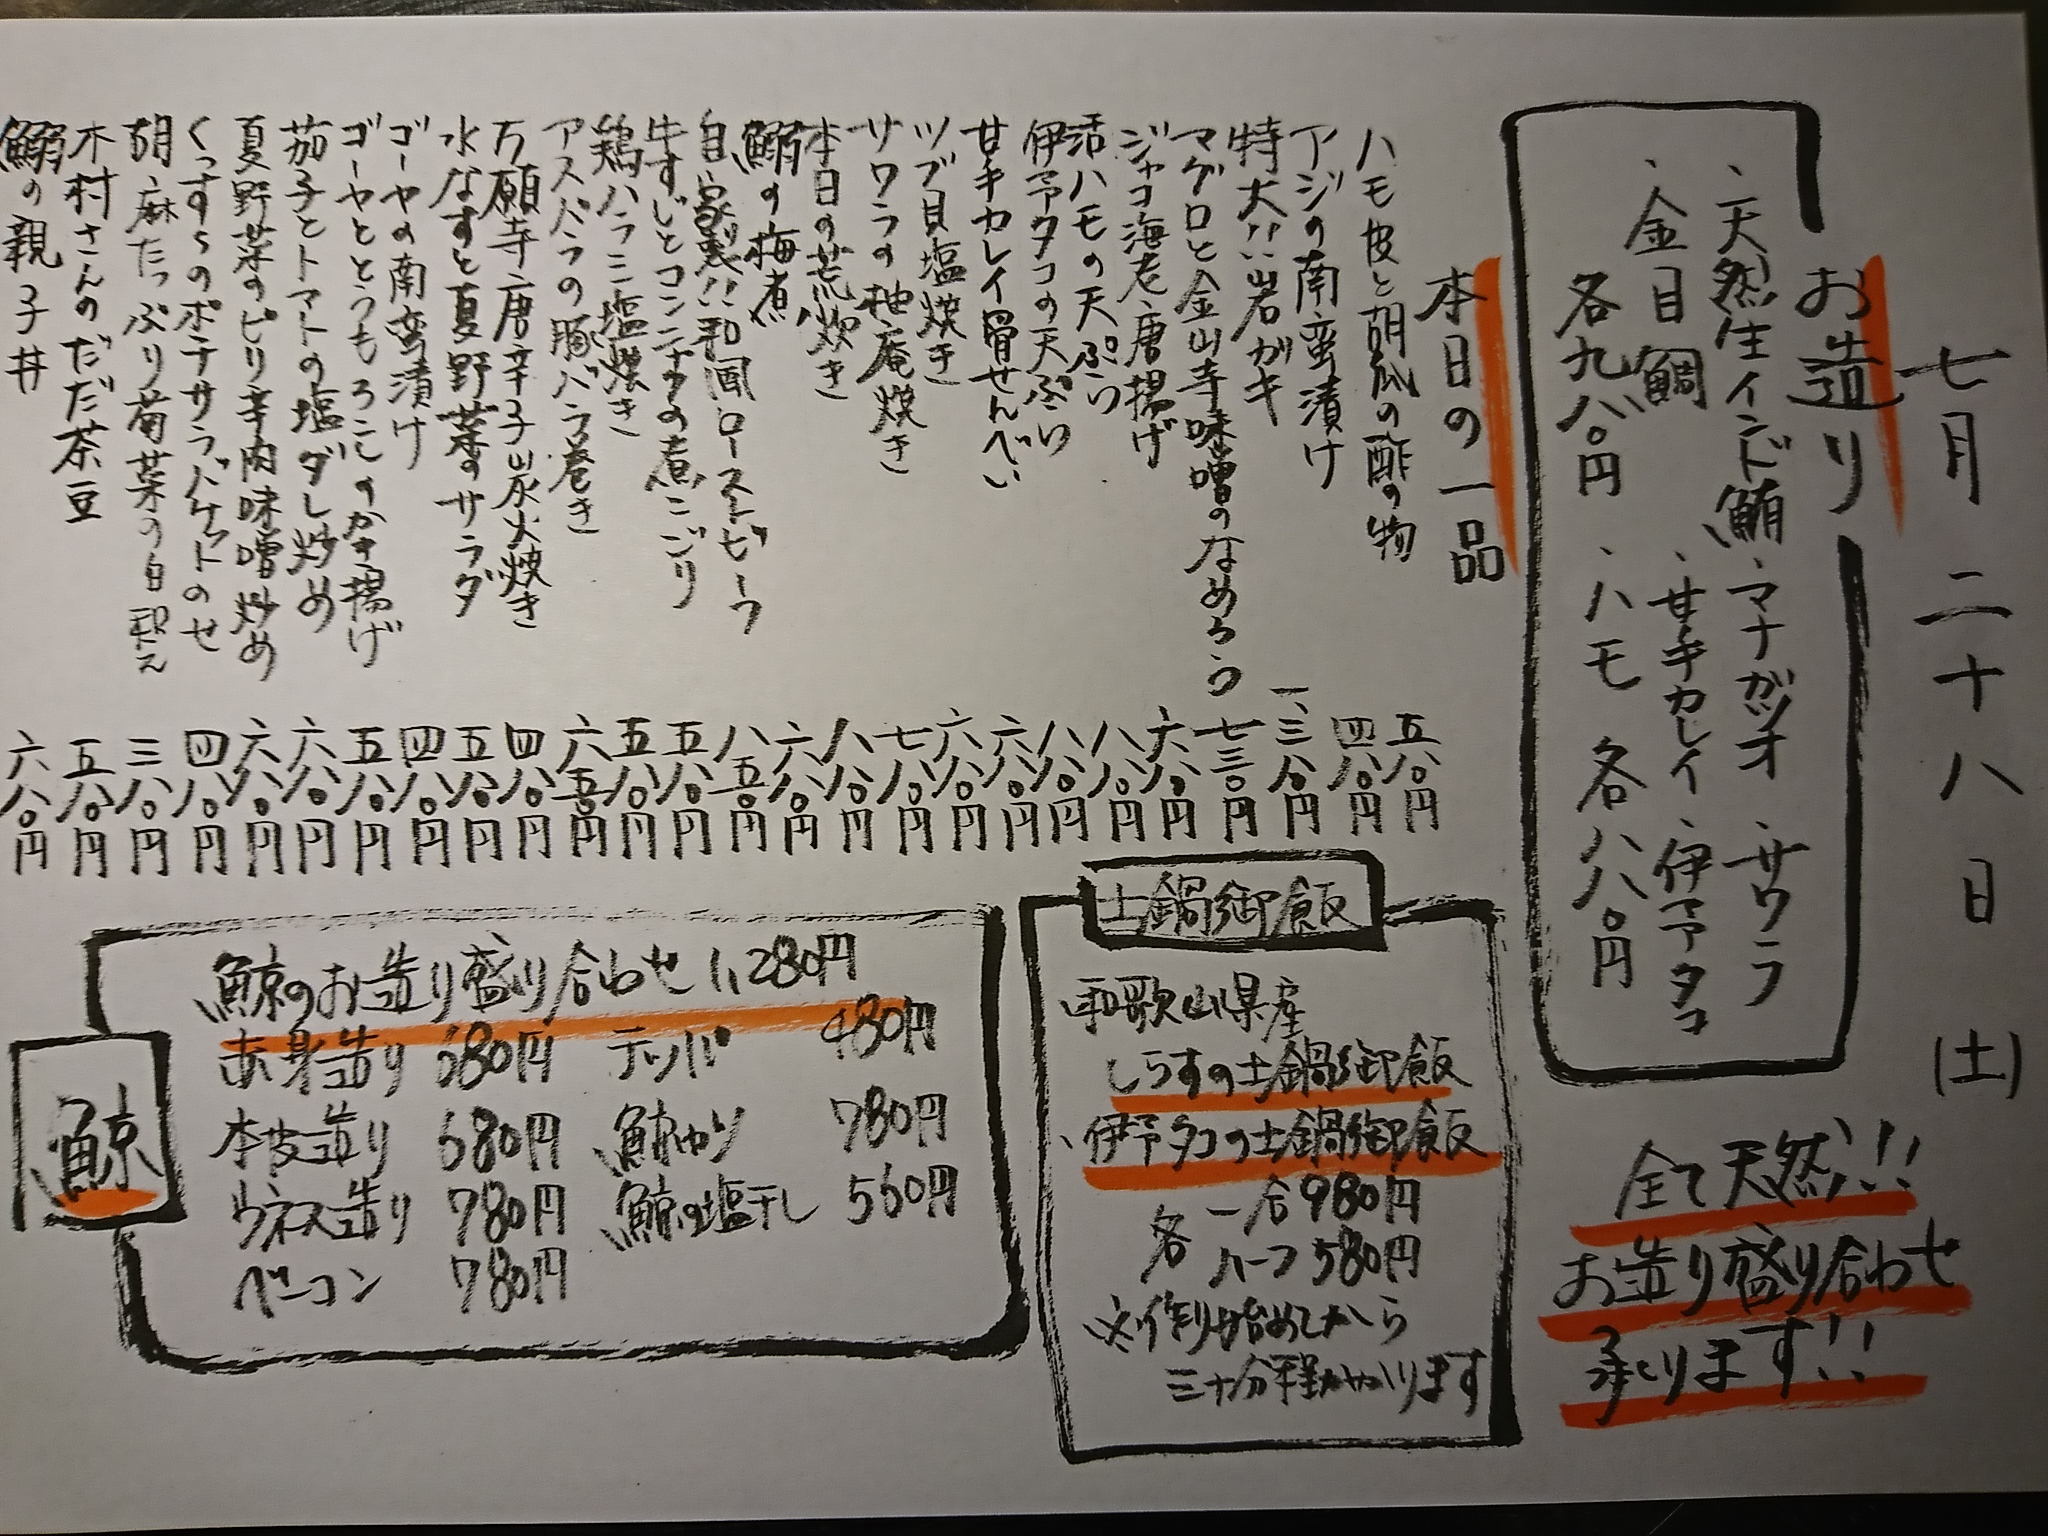 七月二十八日(土)
お造り
・天然生インド鮪・マナガツオ・サワラ
・金目鯛・甘手カレイ・伊予タコ
各九八〇円・ハモ各八八〇円
全て天然!!
お造り盛り合わせ
承ります!!
本日の一品
ハモ皮と胡瓜の酢の物 五八〇円
アジの南蛮漬け 四八〇円
特大!!岩ガキ 一、三八〇円
マグロと金山寺味噌のなめろう 七三〇円
ジャコ海老唐揚げ 六八〇円
活ハモの天ぷら 八八〇円
伊予タコの天ぷら 八八〇円
甘手カレイ骨せんべい 六八〇円
ツブ貝塩焼き 六八〇円
サワラの柚庵焼き 七八〇円
本日の荒炊き 八八〇円
鰯の梅煮 六八〇円
自家製!!和風ローストビーフ 八五〇円
牛すじとコンニャクの煮こごり 五八〇円
鶏ハラミ塩焼き 五八〇円
アスパラの豚バラ巻き 六五〇円
万願寺唐辛子炭火焼き 四八〇円
水なすと夏野菜のサラダ 五八〇円
ゴーヤの南蛮漬け 四八〇円
ゴーヤととうもろこしのかき揚げ 五八〇円
茄子とトマトの塩ダレ炒め 六八〇円
夏野菜のピリ辛肉味噌炒め 六八〇円
くっすらのポテサラバケットのせ 四八〇円
胡麻たっぷり菊菜の白和え 三八〇円
木村さんのだだ茶豆 五八〇円
鰯の親子丼 六八〇円
土鍋御飯
和歌山県産
しらすの土鍋御飯
、伊予タコの土鍋御飯
各 一合980円
ハーフ580円
※作り始めてから
三十分程かかります
鯨
鯨のお造り盛り合わせ 1,280円
赤身造り 680円 テッパ 480円
本皮造り 680円 鯨カツ 780円
ウネス造り 780円 鯨の塩干し 560円
ベーコン 780円